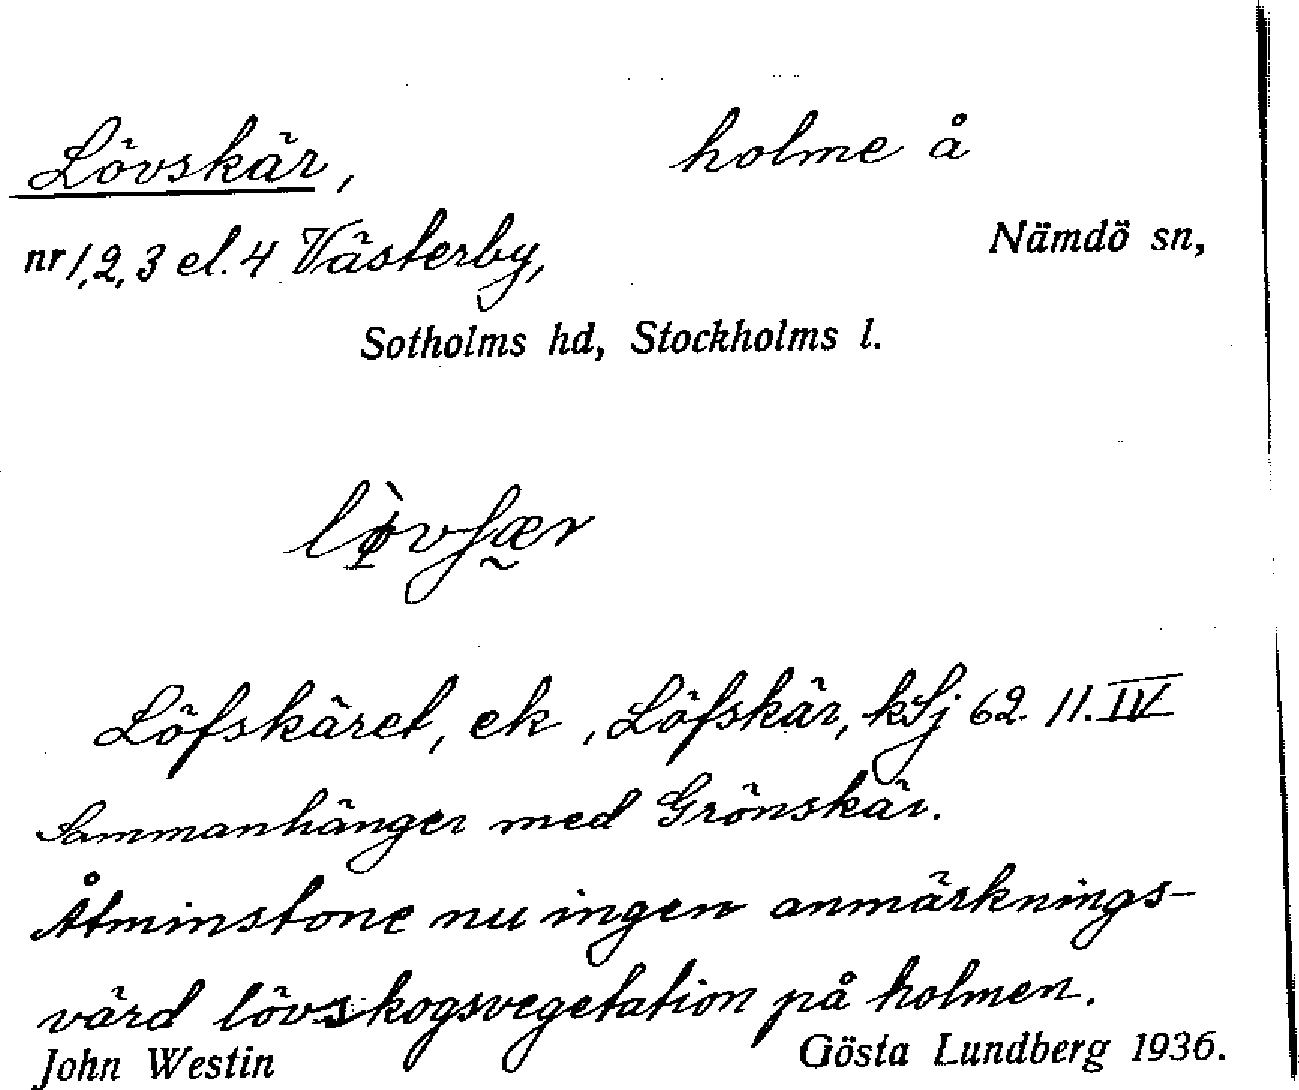 Lövskär, holme å
nr 1, 2, 3 el. 4 Västerby, Nämdö sn,
Sotholms hd, Stockholms l.
lø̀vʃær
Löfskäret, ek, Löfskär, kSj 62. 11. IV
Sammanhänger med Grönskär.
Åtminstone nu ingen anmärknings-
värd lövskogsvegetation på holmen.
John Westin Gösta Lundberg 1936.